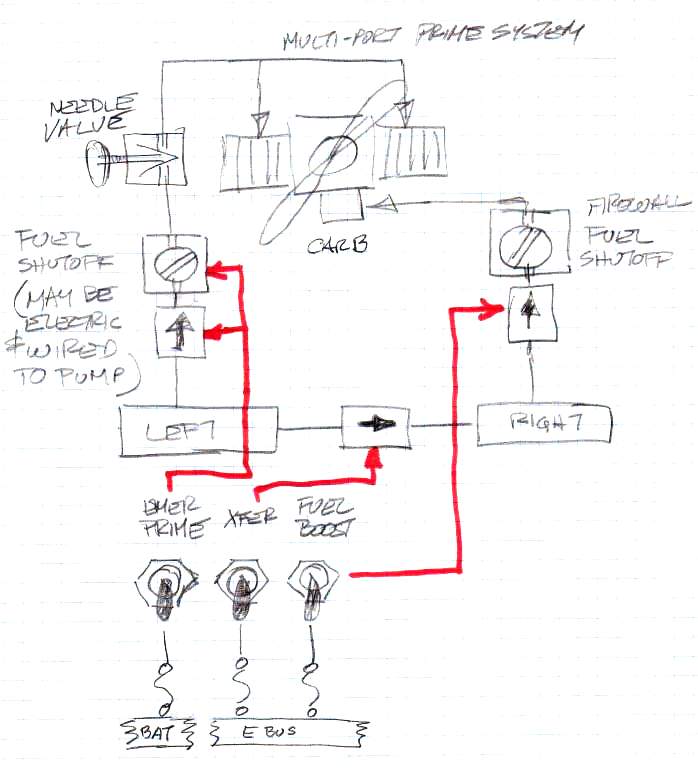 MULTI-PORT PRIME SYSTEM
NEEDLE
VALVE
FIREWALL
FUEL
SHUTOFF
CARB
FUEL
SHUTOFF
(MAY BE
ELECTRIC
& WIRED
TO PUMP)
LEFT
RIGHT
EMER
PRIME
XFER
FUEL
BOOST
BAT
E BUS